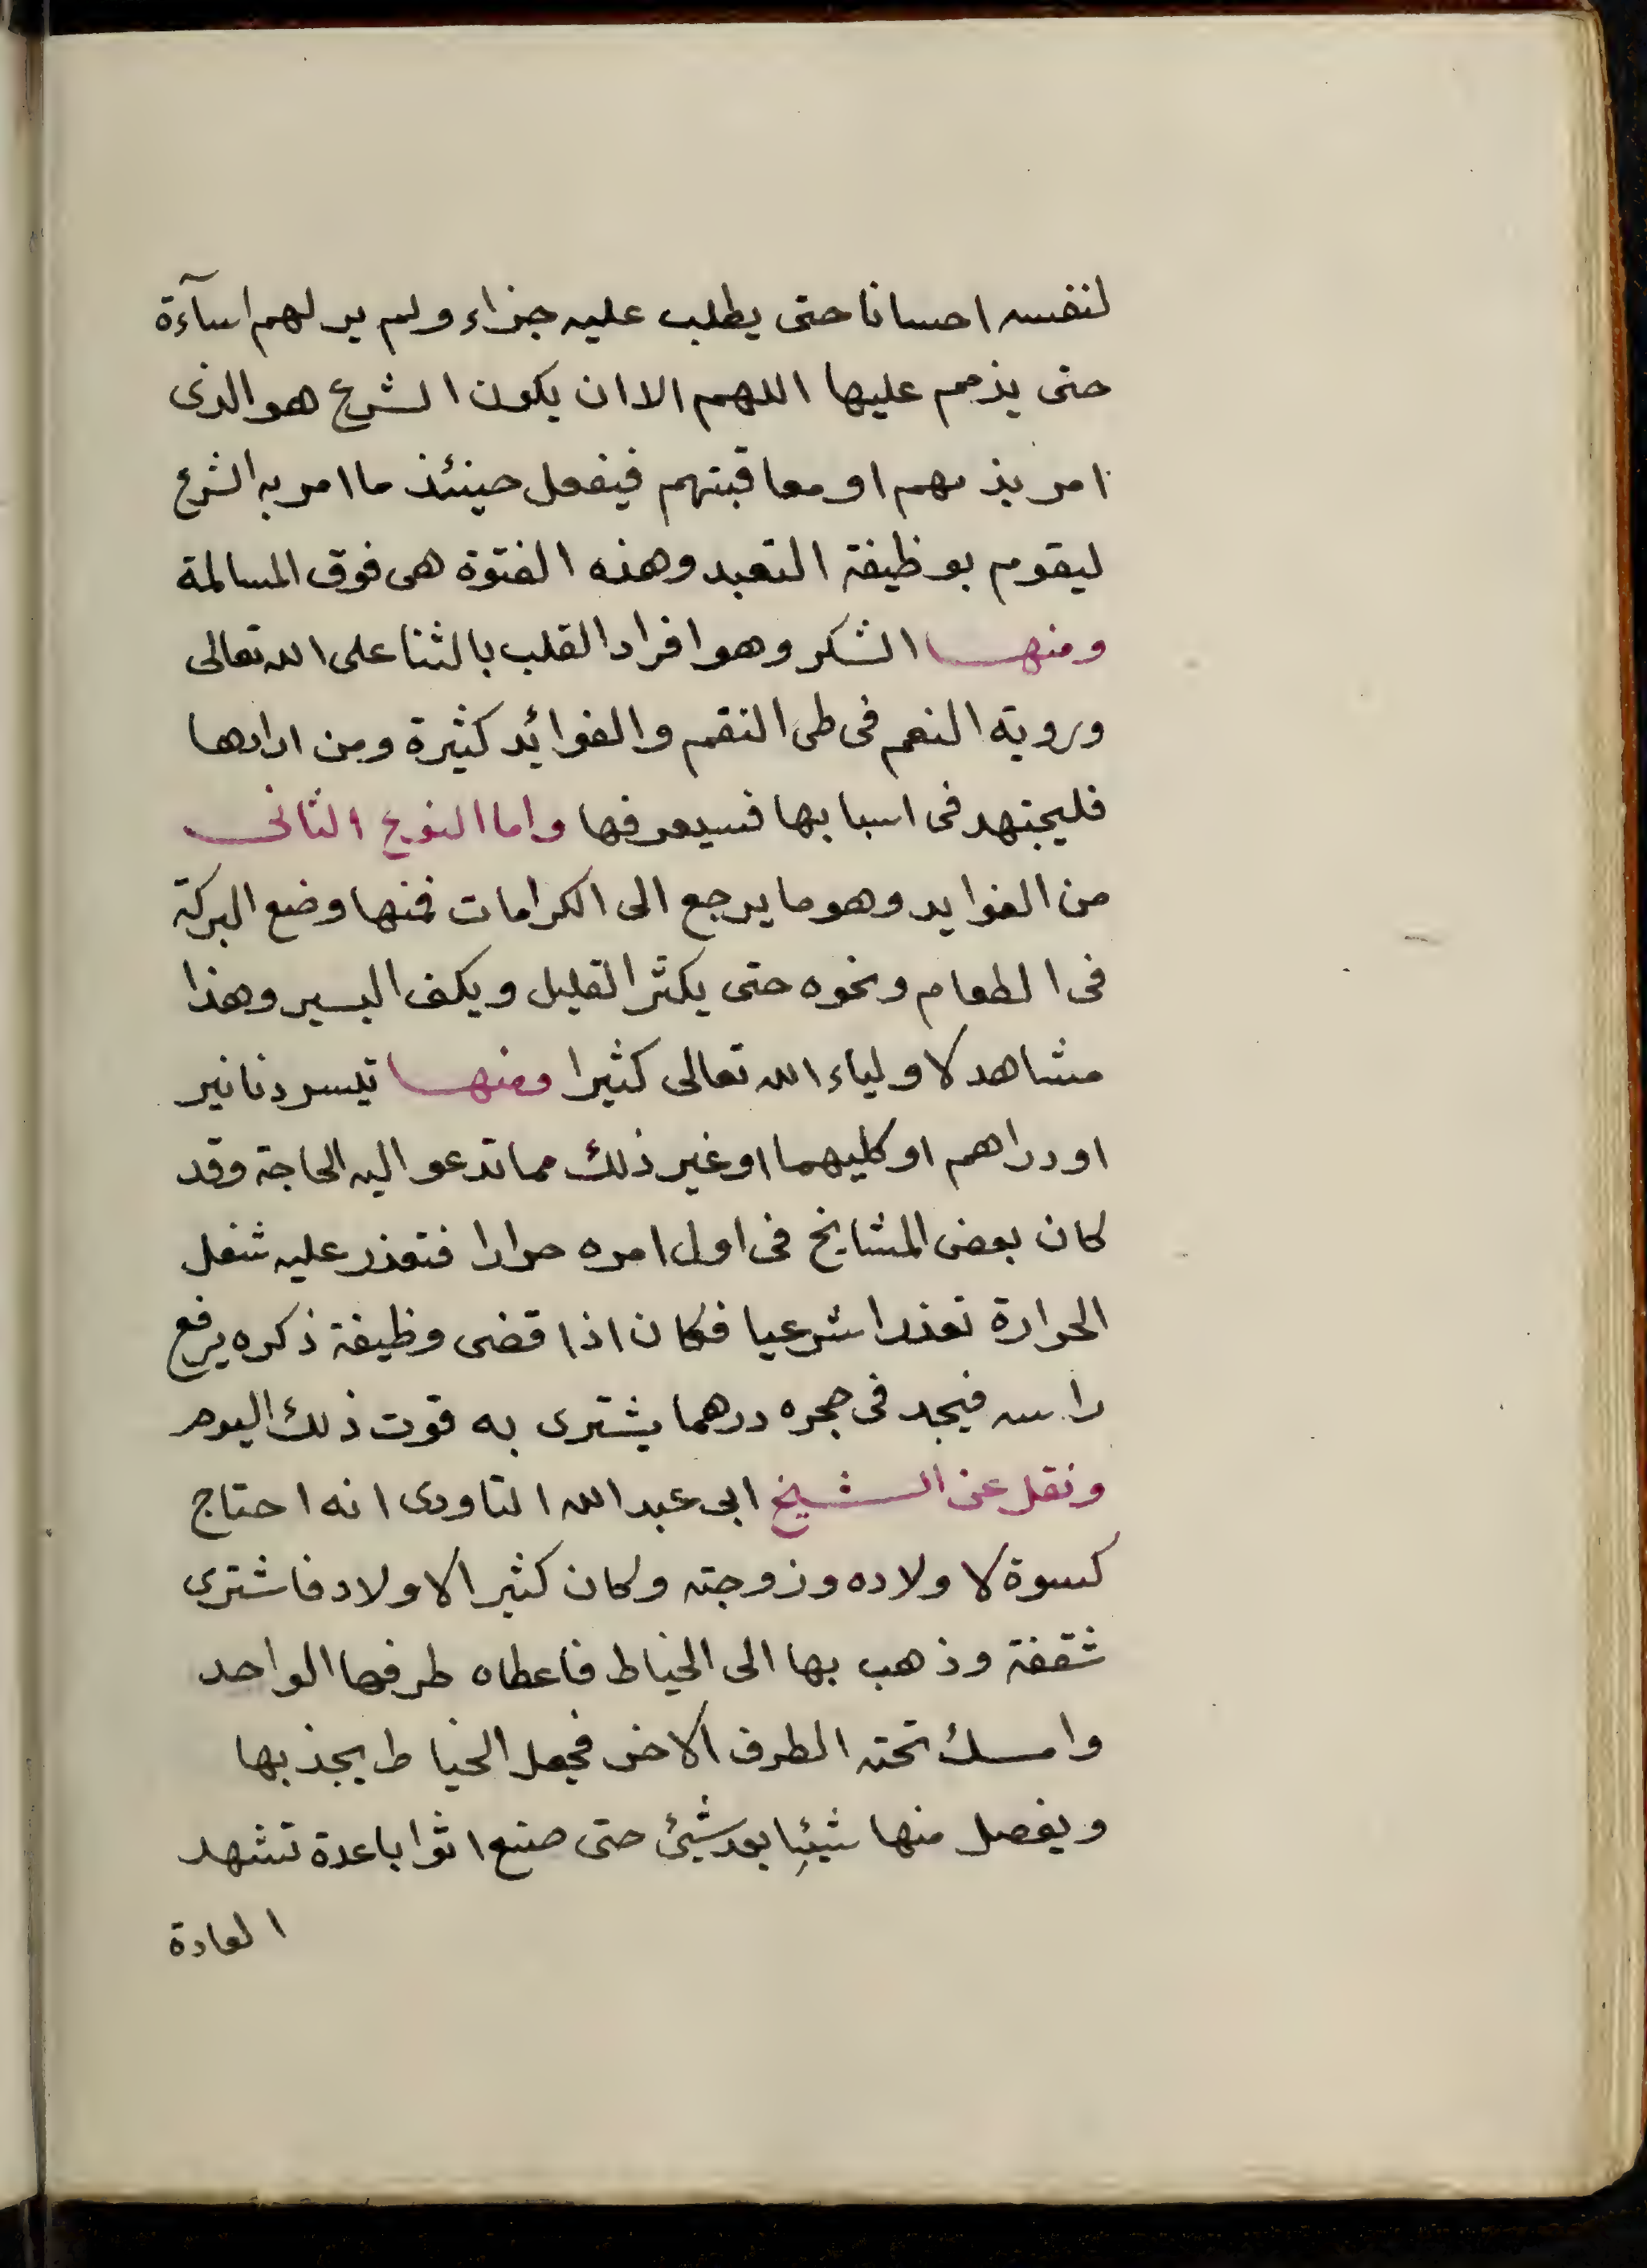 لنفسه احسانا حتى يطلب عليه جزاء ولم ير لهم اسآءة
حتى يذمهم عليها اللهم الا ان يكون الشرع هو الذى
امر بذمهم او معاقبتهم فيفعل حينئذ ما امر به الشرع
ليقوم بوظيفة التعبد وهذه الفتوة هى فوق المسالمة
ومنها الشكر وهو افراد القلب بالثنا على الله تعالى
وروية النعم فى طى النقم والفوائد كثيرة ومن ارادها
فليجتهد فى اسبابها فسيعرفها واما النوع الثانى
من الفوايد وهو ما يرجع الى الكرامات فمنها وضع البركة
فى الطعام ونحوه حتى يكثر القليل ويكف اليسير وهذا
مشاهد لاولياء الله تعالى كثيرا ومنها تيسر دنانير
او دراهم او كليهما او غير ذلك مما تدعو اليه الحاجة وقد
كان بعض المشايخ فى اول امره حرارا فتعذر عليه شغل
الحرارة تعذرا شرعيا فكان اذا قضى وظيفة ذكره يرفع
راسه فيجد فى حجره درهما يشترى به قوت ذلك اليوم
ونقل عن الشيخ ابى عبد الله التاودى انه احتاج
كسوة لاولاده وزوجته وكان كثير الاولاد فاشترى
شقفة وذهب بها الى الخياط فاعطاه طرفها الواحد
وامسك تحته الطرف الاخر فجعل الخياط يجذبها
ويفصل منها شيئا بعد شيئ حتى صنع اثوابا عدة تشهد
العادة